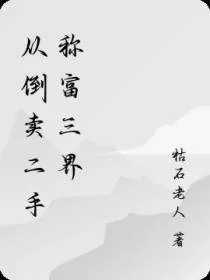 从倒卖二手
称富三界
枯石老人 著